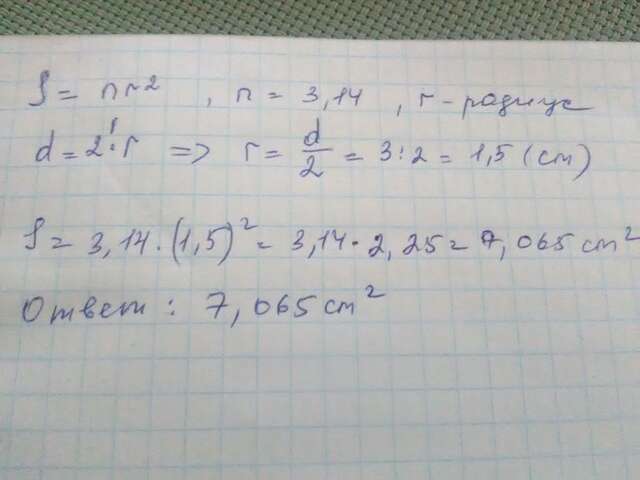 S = πr², π = 3,14, r - радиус
d = 2·r => r = d/2 = 3:2 = 1,5 (см)
S = 3,14·(1,5)² = 3,14·2,25 = 7,065 см²
Ответ: 7,065 см²